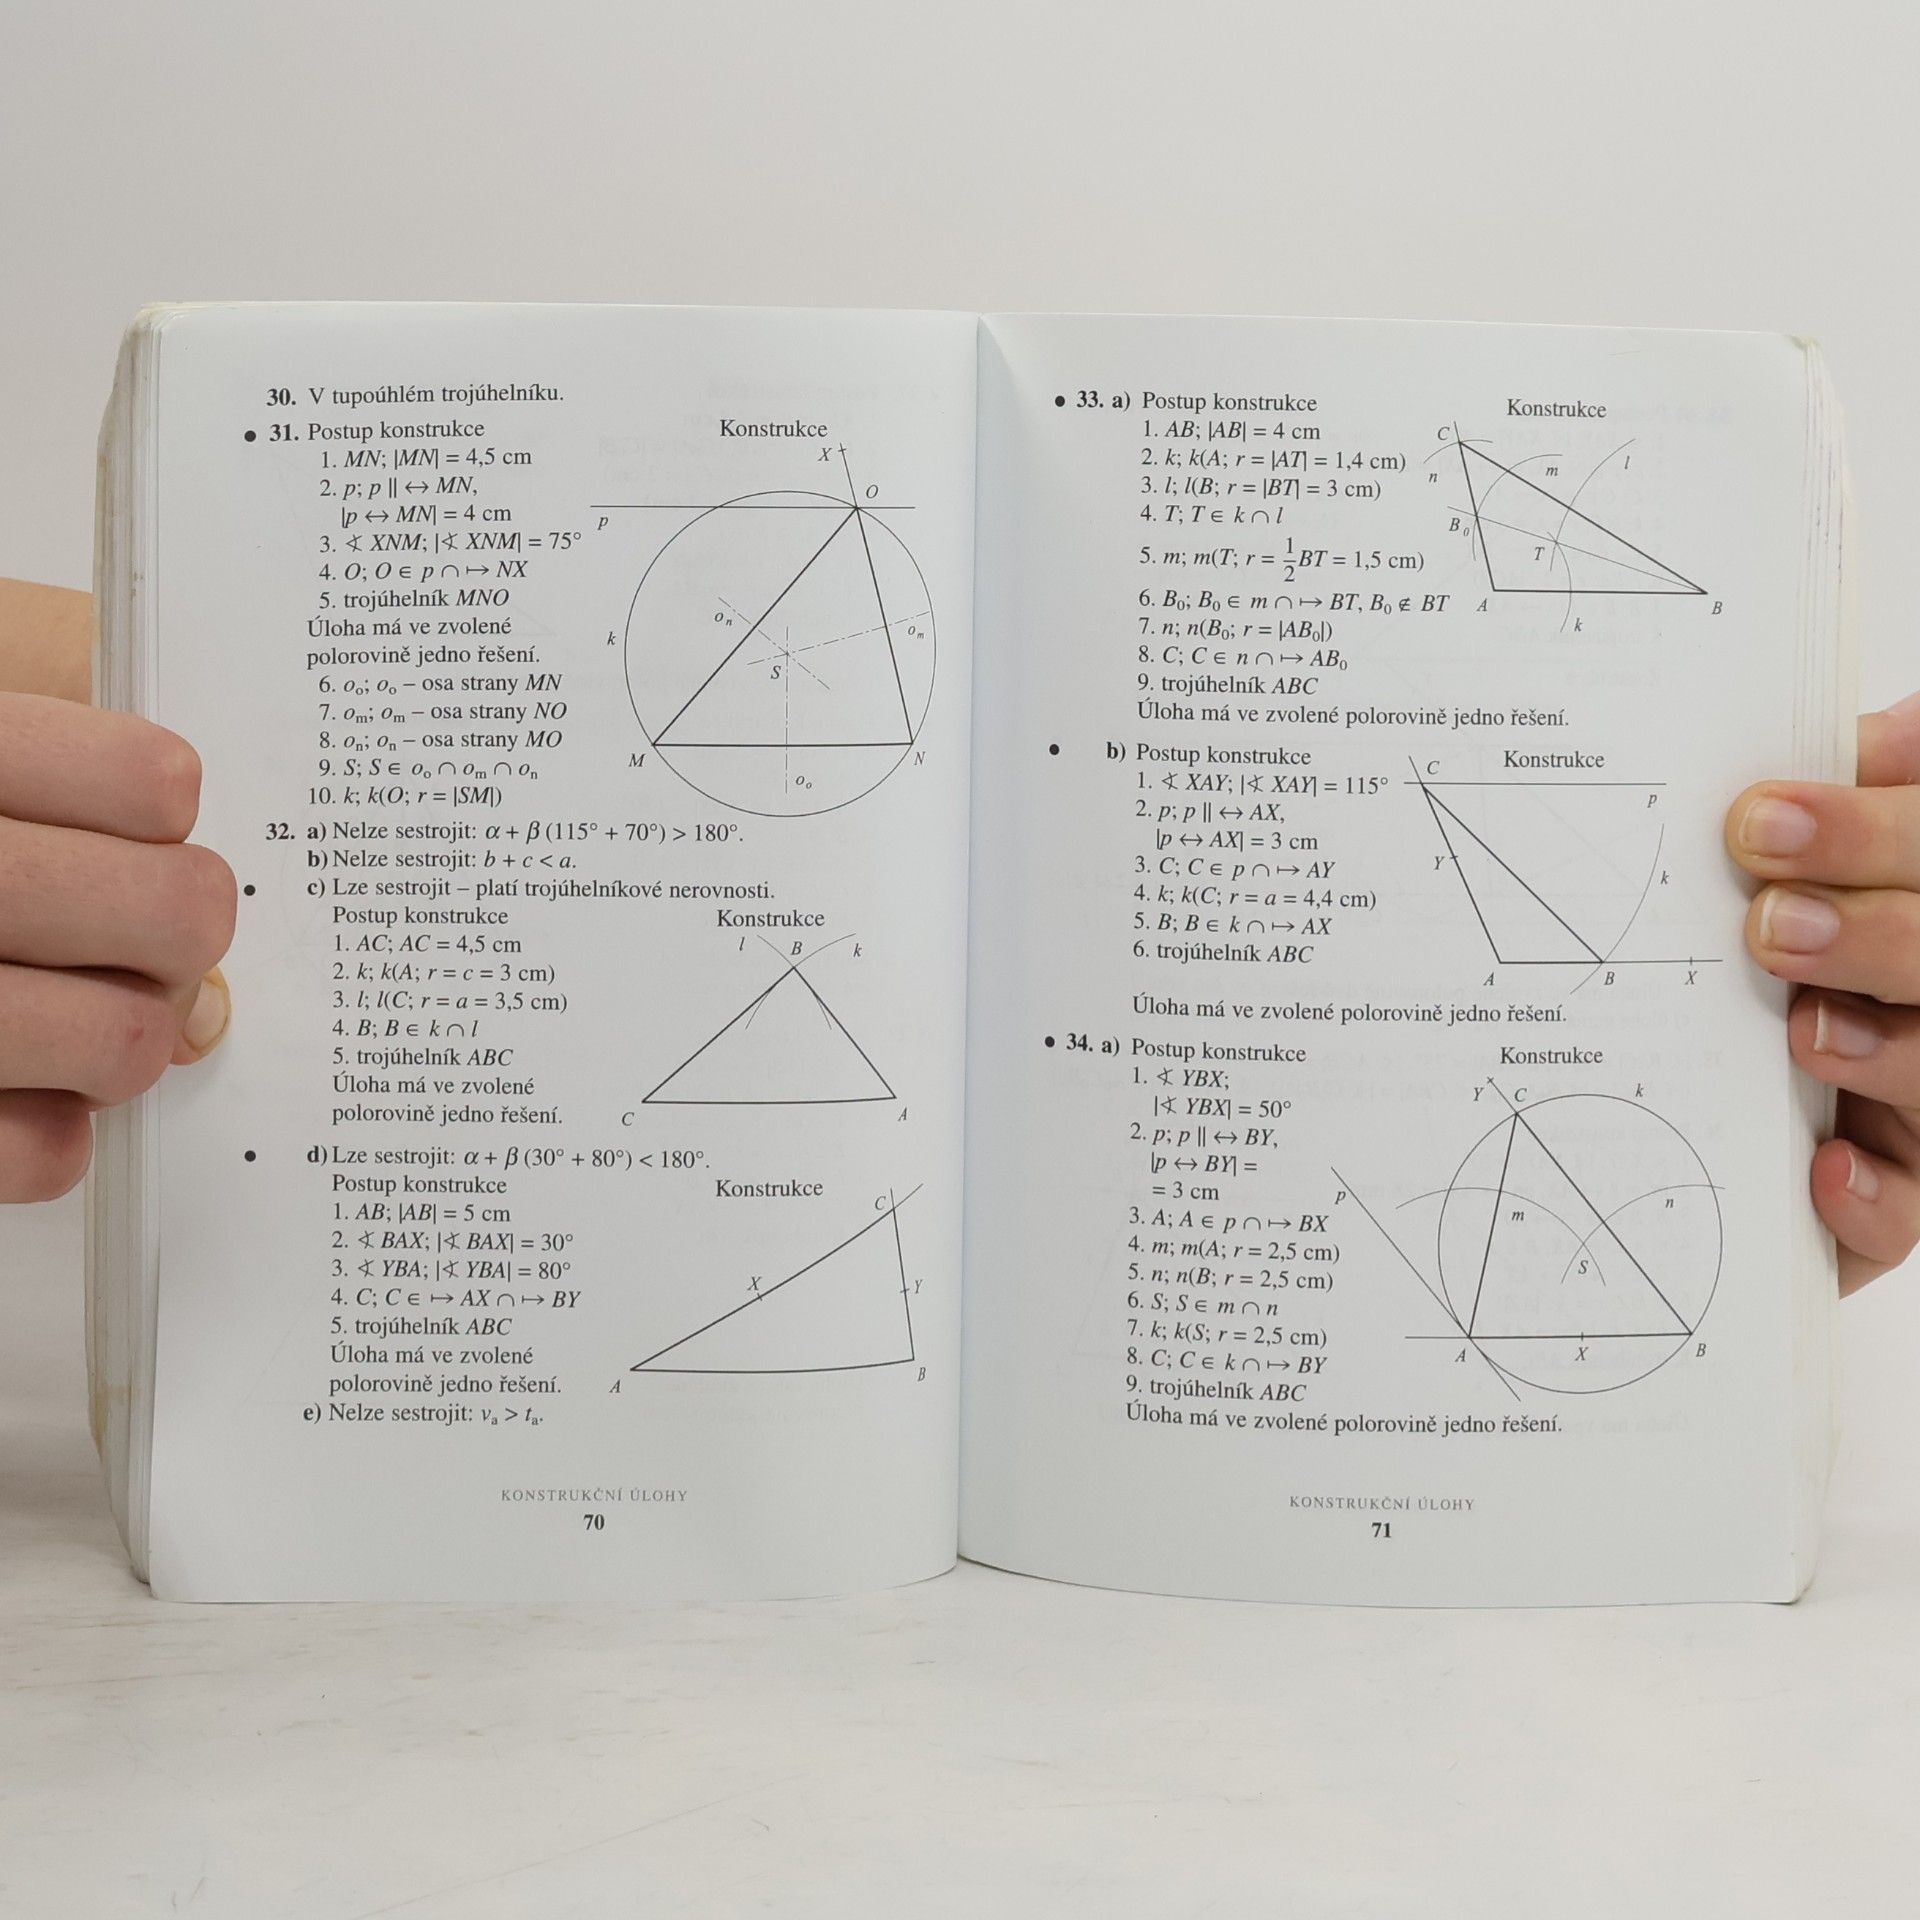 30. V tupoúhlém trojúhelníku.
• 31. Postup konstrukce
Konstrukce
1. MN; |MN| = 4,5 cm
2. p; p || ↔ MN,
|p ↔ MN| = 4 cm
3. ∢ XNM; |∢ XNM| = 75°
4. O; O ∈ p ∩ ↦ NX
5. trojúhelník MNO
Úloha má ve zvolené
polorovině jedno řešení.
6. oₒ; oₒ – osa strany MN
7. oₘ; oₘ – osa strany NO
8. oₙ; oₙ – osa strany MO
9. S; S ∈ oₒ ∩ oₘ ∩ oₙ
10. k; k(O; r = |SM|)
X
O
p
oₙ
k
oₘ
S
M
N
oₒ
32. a) Nelze sestrojit: α + β (115° + 70°) > 180°.
b) Nelze sestrojit: b + c < a.
• c) Lze sestrojit – platí trojúhelníkové nerovnosti.
Postup konstrukce
Konstrukce
1. AC; AC = 4,5 cm
2. k; k(A; r = c = 3 cm)
3. l; l(C; r = a = 3,5 cm)
4. B; B ∈ k ∩ l
5. trojúhelník ABC
Úloha má ve zvolené
polorovině jedno řešení.
l
B
k
C
A
• d) Lze sestrojit: α + β (30° + 80°) < 180°.
Postup konstrukce
Konstrukce
1. AB; |AB| = 5 cm
2. ∢ BAX; |∢ BAX| = 30°
3. ∢ YBA; |∢ YBA| = 80°
4. C; C ∈ ↦ AX ∩ ↦ BY
5. trojúhelník ABC
Úloha má ve zvolené
polorovině jedno řešení.
C
X
Y
A
B
e) Nelze sestrojit: vₐ > tₐ.
KONSTRUKČNÍ ÚLOHY
70
• 33. a) Postup konstrukce
Konstrukce
1. AB; |AB| = 4 cm
2. k; k(A; r = |AT| = 1,4 cm)
3. l; l(B; r = |BT| = 3 cm)
4. T; T ∈ k ∩ l
5. m; m(T; r = 1/2 BT = 1,5 cm)
6. B₀; B₀ ∈ m ∩ ↦ BT, B₀ ∉ BT
7. n; n(B₀; r = |AB₀|)
8. C; C ∈ n ∩ ↦ AB₀
9. trojúhelník ABC
Úloha má ve zvolené polorovině jedno řešení.
C
l
m
n
B₀
T
A
B
k
• b) Postup konstrukce
Konstrukce
1. ∢ XAY; |∢ XAY| = 115°
2. p; p || ↔ AX,
|p ↔ AX| = 3 cm
3. C; C ∈ p ∩ ↦ AY
4. k; k(C; r = a = 4,4 cm)
5. B; B ∈ k ∩ ↦ AX
6. trojúhelník ABC
Úloha má ve zvolené polorovině jedno řešení.
C
p
Y
k
A
B
X
• 34. a) Postup konstrukce
Konstrukce
1. ∢ YBX;
|∢ YBX| = 50°
2. p; p || ↔ BY,
|p ↔ BY| =
= 3 cm
3. A; A ∈ p ∩ ↦ BX
4. m; m(A; r = 2,5 cm)
5. n; n(B; r = 2,5 cm)
6. S; S ∈ m ∩ n
7. k; k(S; r = 2,5 cm)
8. C; C ∈ k ∩ ↦ BY
9. trojúhelník ABC
Úloha má ve zvolené polorovině jedno řešení.
Y
C
k
p
m
n
S
A
X
B
KONSTRUKČNÍ ÚLOHY
71